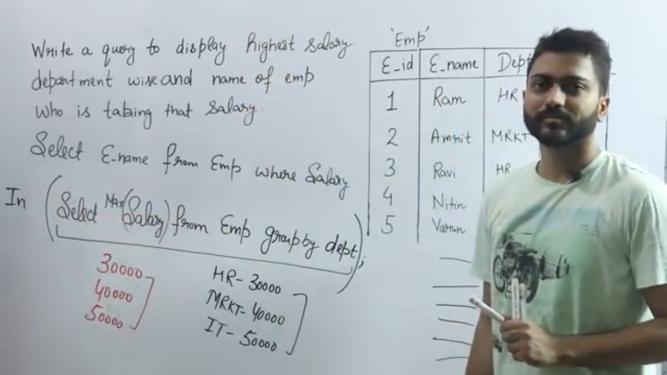 Write a query to display highest salary
department wise and name of emp
who is taking that salary.
Select E-name from Emp where Salary
In (Select Max(Salary) from Emp group by dept);
30000
40000
50000
HR - 30000
MRKT - 40000
IT - 50000
'Emp'
E_id E_name Dept
1 Ram HR
2 Amrit MRKT
3 Ravi HR
4 Nitin
5 Varun